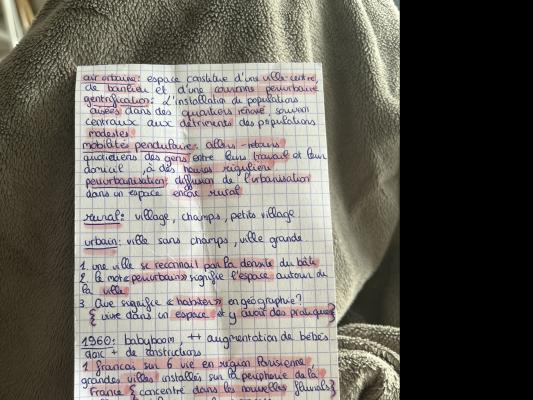 air urbaine: espace constitué d'une ville-centre,
de banlieu et d'une couronne periurbaine
gentrification: d'installation de populations
aisées dans des quartiers rénové, souvent
centraux aux détriments des populations
modestes
mobilités pendulaire: allers-retours
quotidiens des gens entre leurs travail et leur
domicil, à des heures régulières
periurbanisation: diffusion de l'urbanisation
dans un espace encore rural
rural: village, champs, petits village
urbain: ville sans champs, ville grande
1. une ville se reconnait par la densité du bâti
2. le mot «periurbain» signifie l'espace autour de
la ville
3. Que signifie «habiter» en géographie?
{ vivre dans un espace et y avoir des pratiques}
1960: babyboom, ++ augmentation de bébés
donc + de constructions
1 francais sur 6 vie en région Parisienne,
grandes villes installés sur la peripherie de la
France { concentré dans les nouvelles fluvials}